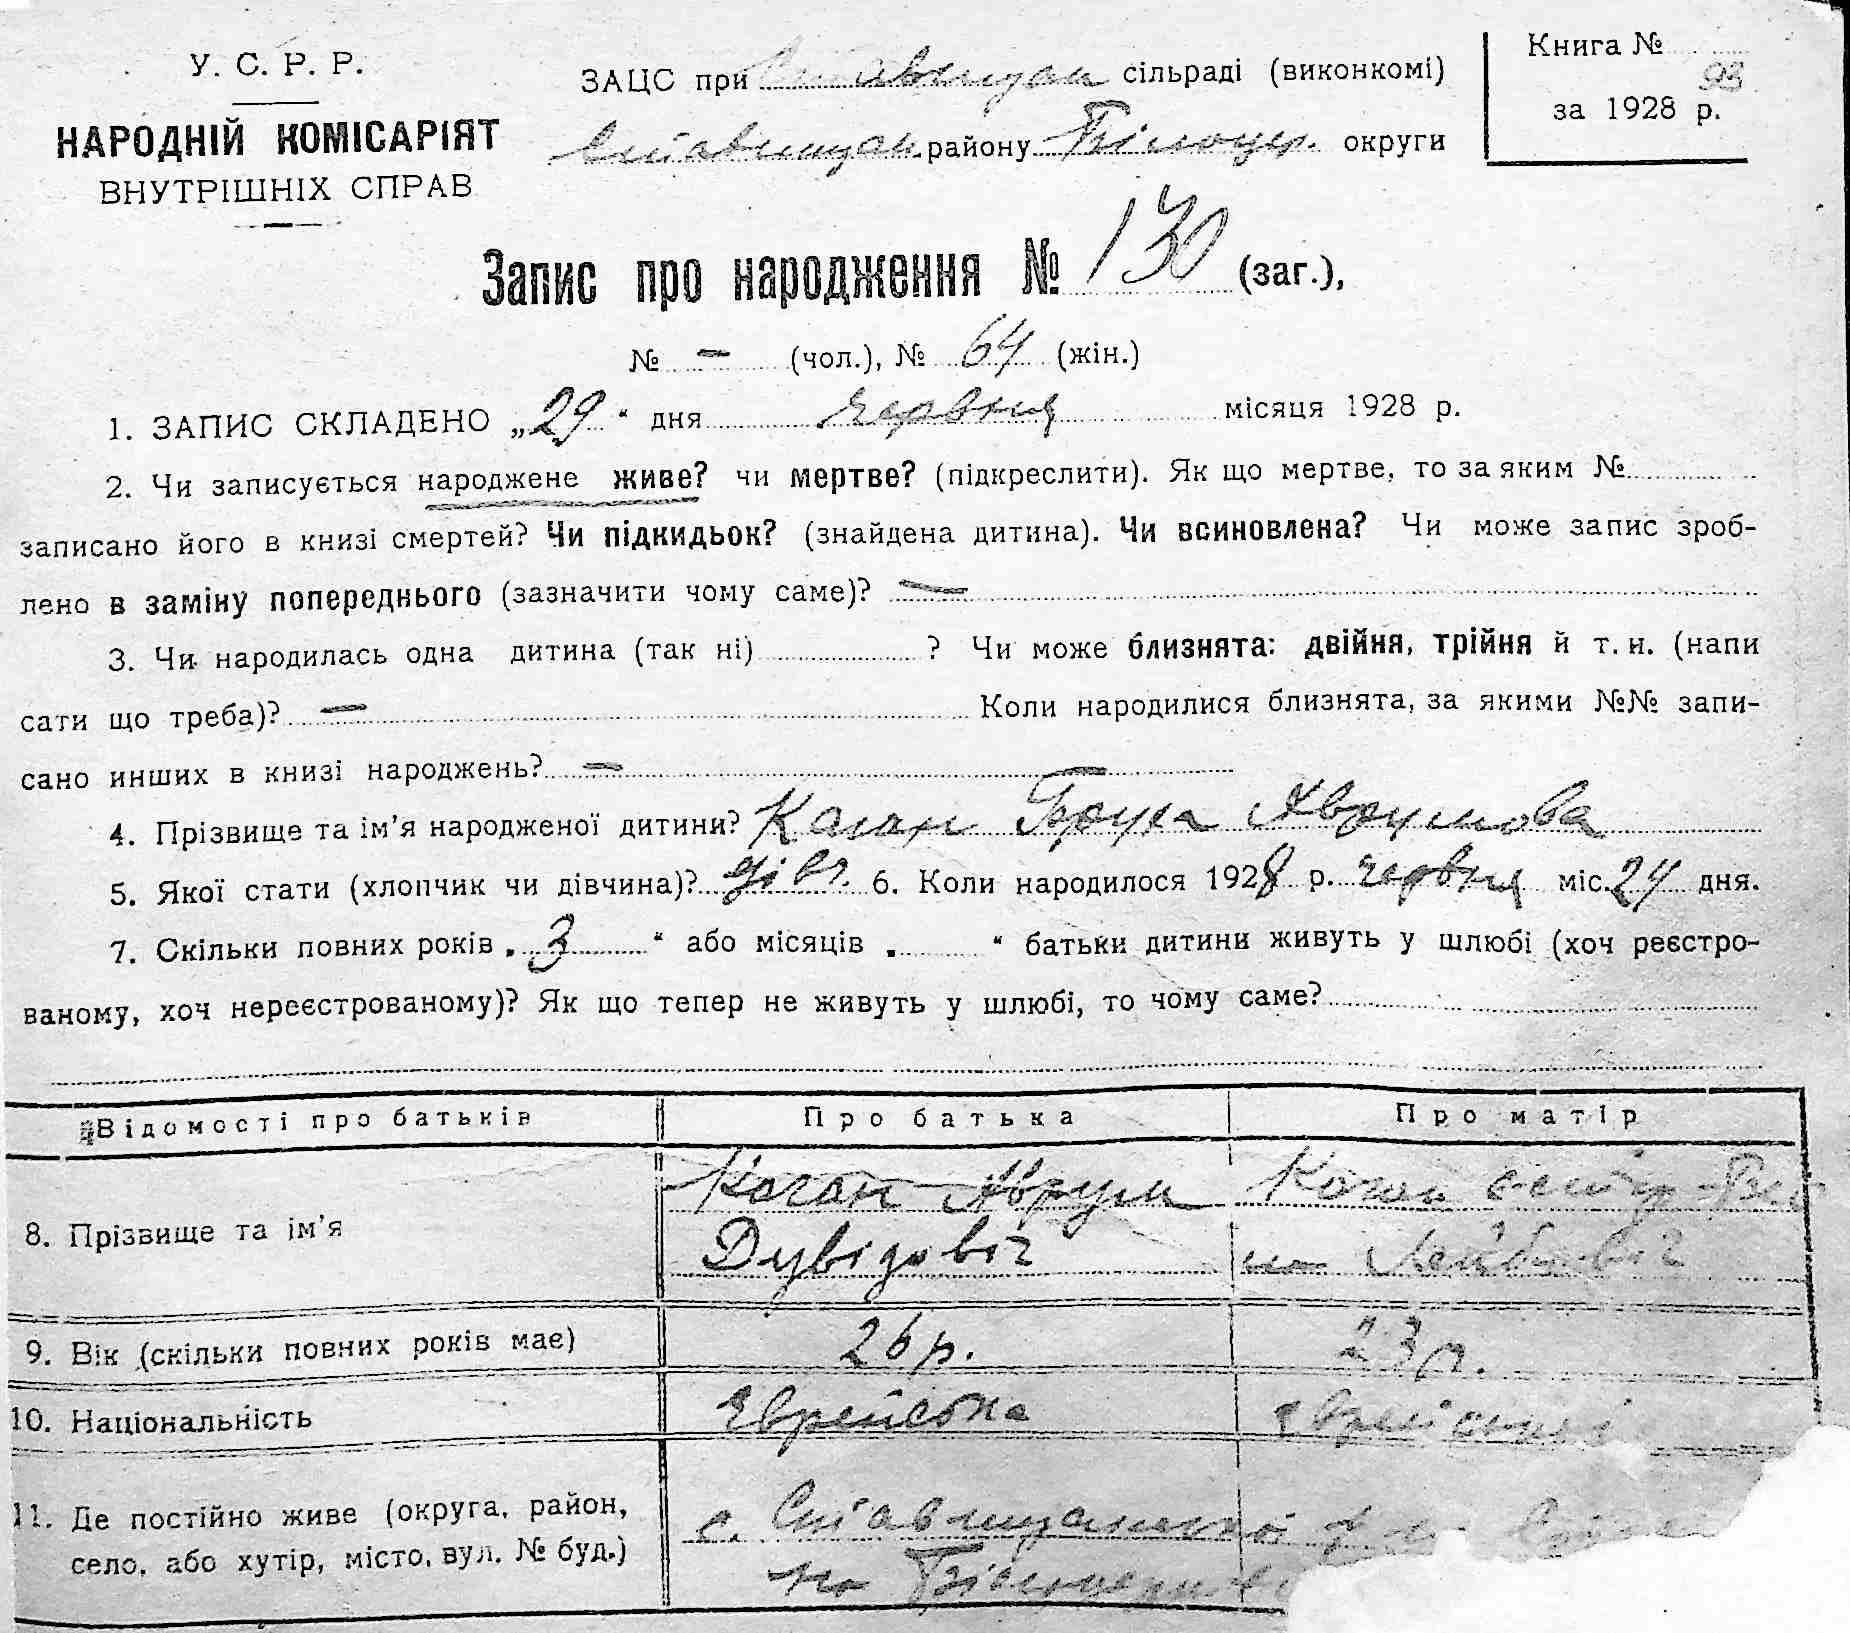 У. С. Р. Р.
НАРОДНІЙ КОМІСАРІЯТ
ВНУТРІШНІХ СПРАВ
ЗАЦС при Ставищан сільраді (виконкомі)
Ставищан. району Білоцер. округи
Книга №
93
за 1928 р.
Запис про народження № 130 (заг.),
№ — (чол.), № 64 (жін.)
1. ЗАПИС СКЛАДЕНО „29“ дня червня місяця 1928 р.
2. Чи записується народжене живе? чи мертве? (підкреслити). Як що мертве, то за яким №
записано його в книзі смертей? Чи підкидьок? (знайдена дитина). Чи всиновлена? Чи може запис зроб-
лено в заміну попереднього (зазначити чому саме)? —
3. Чи народилась одна дитина (так ні) ? Чи може близнята: двійня, трійня й т. и. (напи
сати що треба)? — Коли народилися близнята, за якими №№ запи-
сано инших в книзі народжень? —
4. Прізвище та ім’я народженої дитини? Каган Брука Аврумова
5. Якої стати (хлопчик чи дівчина)? дівч. 6. Коли народилося 1928 р. червня міс. 24 дня.
7. Скільки повних років „ 3 “ або місяців „ “ батьки дитини живуть у шлюбі (хоч реєстро-
ваному, хоч нереєстрованому)? Як що тепер не живуть у шлюбі, то чому саме?
Відомості про батьків Про батька Про матір
8. Прізвище та ім’я Каган Аврум Каган
Дувідовіч Лейбовіч
9. Вік (скільки повних років має) 26 р. 23 р.
10. Національність Єврейська єврейської
11. Де постійно живе (округа, район, с. Ставищанської
село, або хутір, місто, вул. № буд.) на Білоцерків